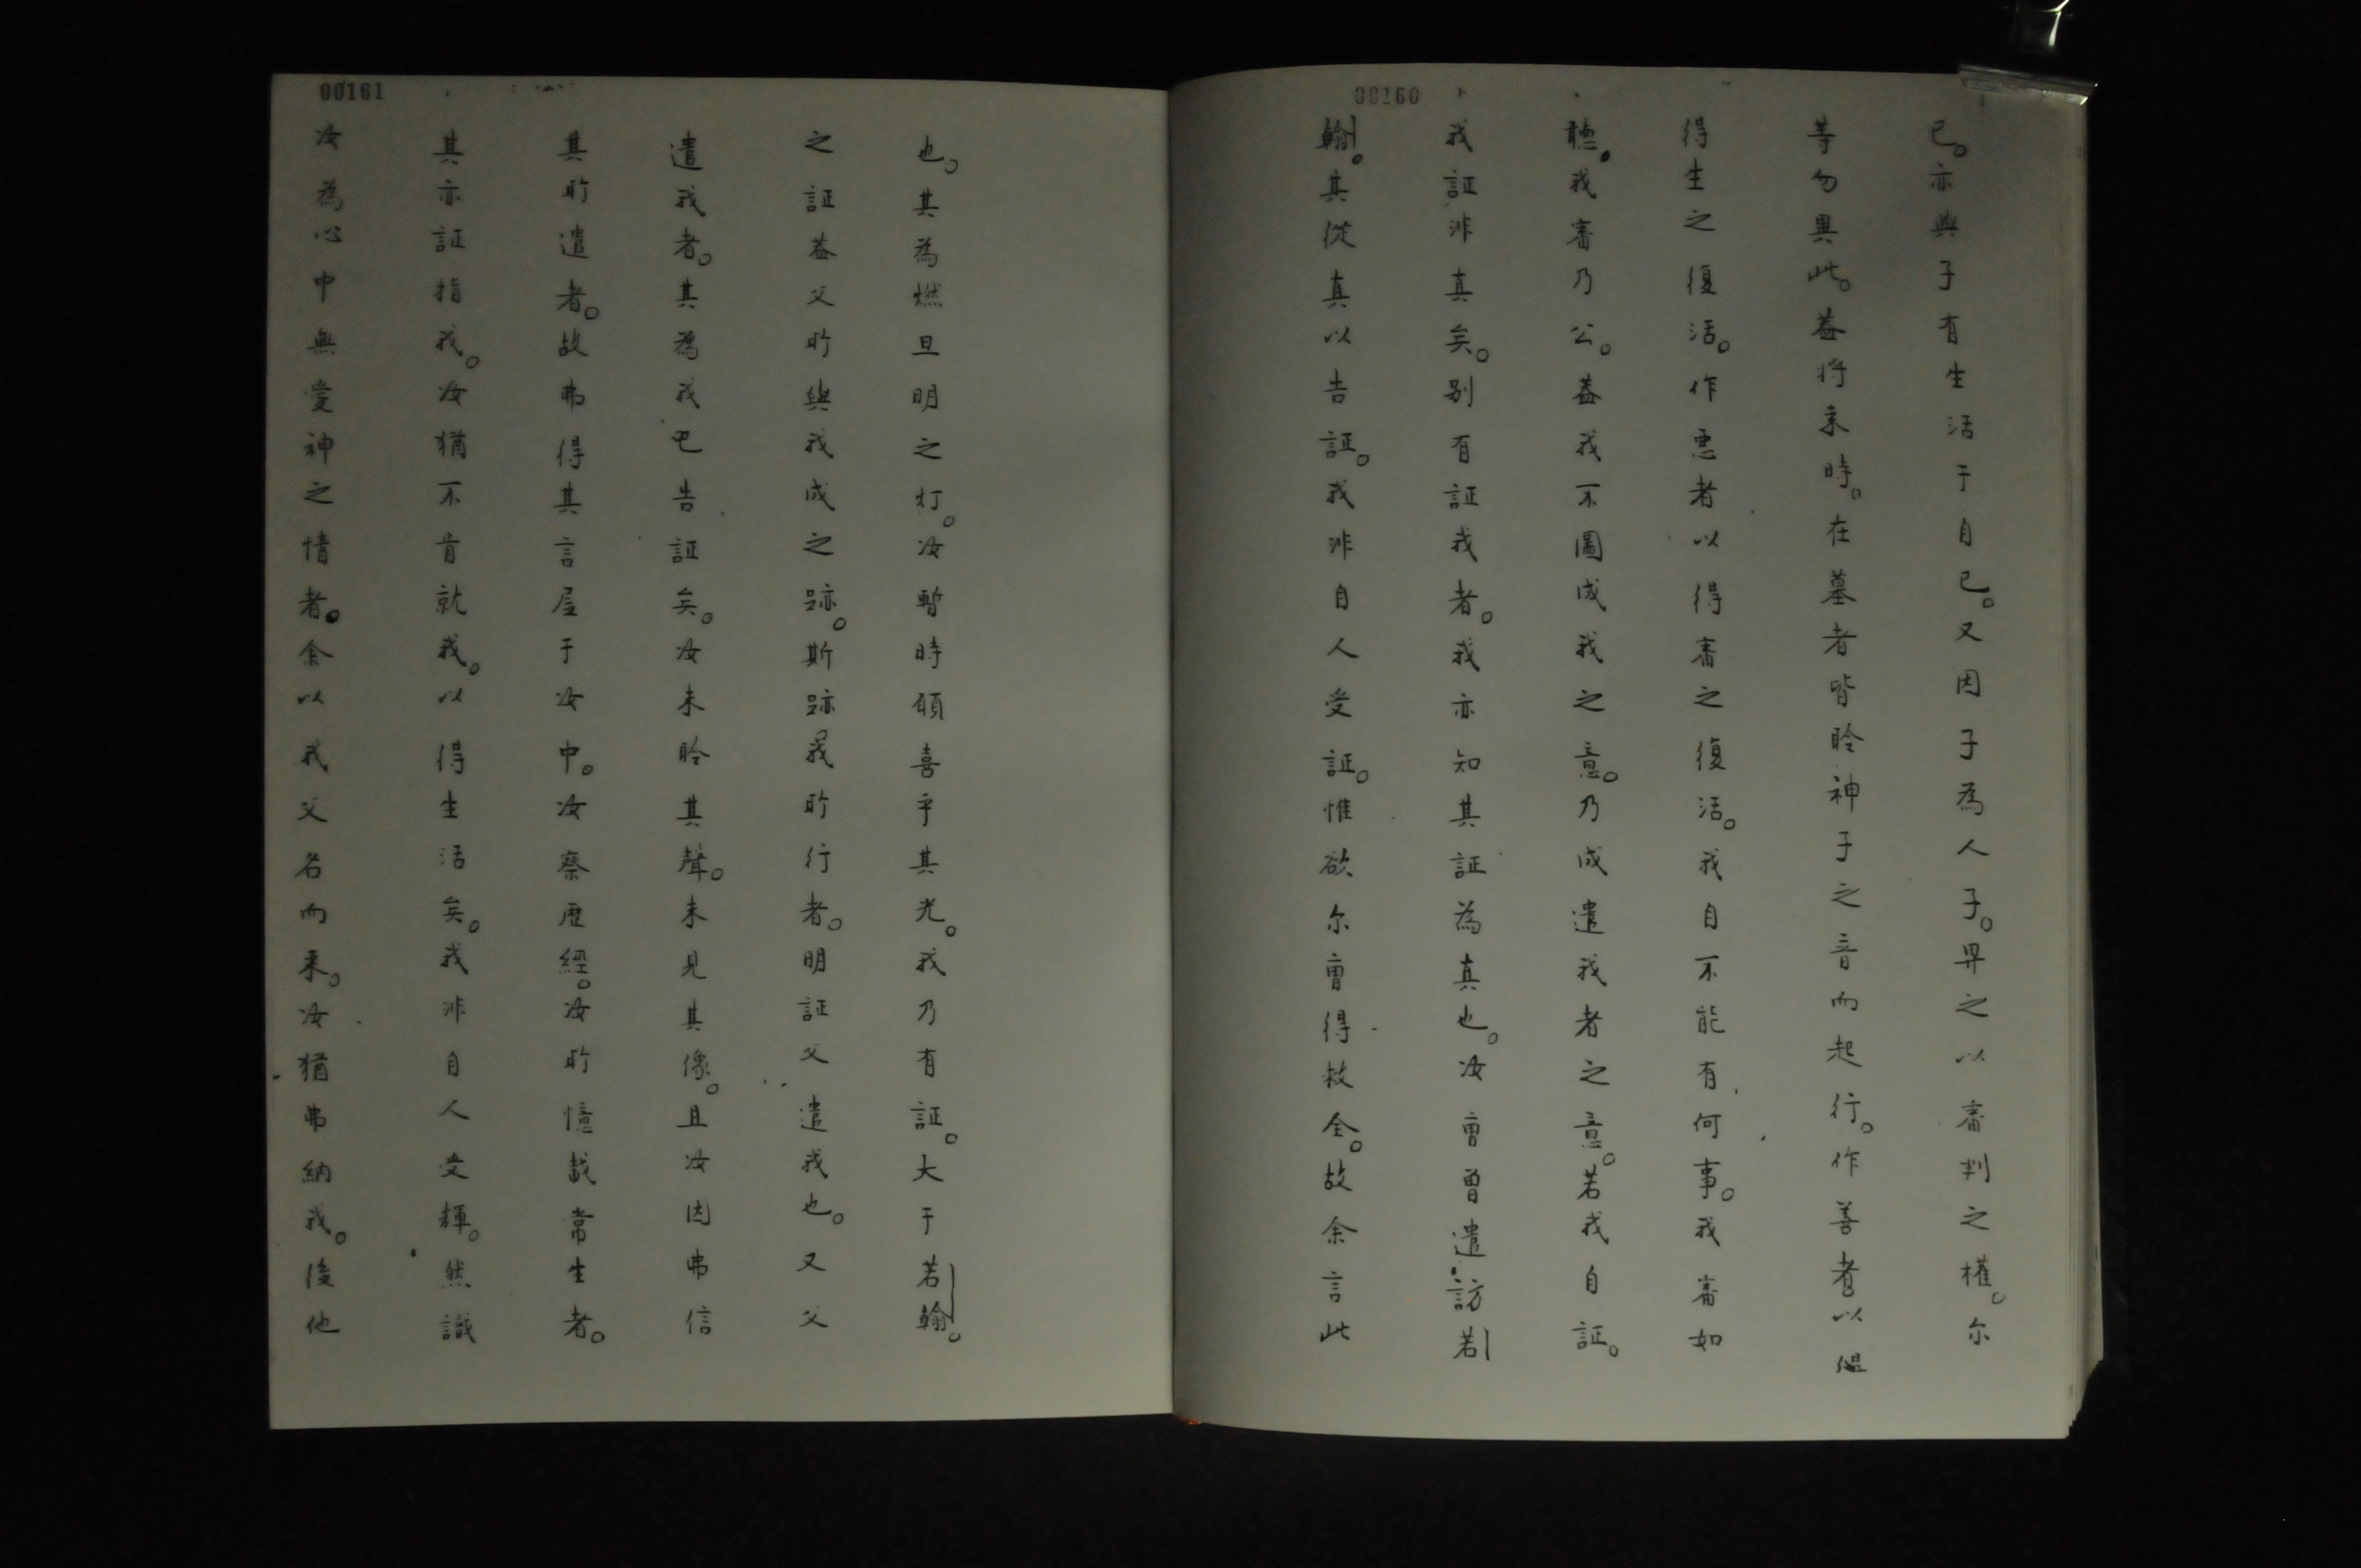 00160
已。亦與子有生活于自己。又因子為人子。畀之以審判之權。尔
等勿異此。蓋将来時。在墓者皆聆神子之音而起行。作善者以
得生之復活。作悪者以得審之復活。我自不能有何事。我審如
聴。我審乃公。蓋我不圖成我之意。乃成遣我者之意。若我自証。
我証非真矣。别有証我者。我亦知其証為真也。汝曹曽遣訪若
翰。其從真以告証。我非自人受証。惟欲尔曹得救全。故余言此
00161
也。其為燃且明之灯。汝暫時願喜乎其光。我乃有証。大于若翰。
之証蓋父所與我成之跡。斯跡我所行者。明証父遣我也。又父
遣我者。其為我已告証矣。汝未聆其聲。未見其像。且汝因弗信
其所遣者。故弗得其言居于汝中。汝察歷經。汝所憶哉常生者。
其亦証指我。汝猶不肯就我。以得生活矣。我非自人受輝。然識
汝為心中無愛神之情者。余以我父名而来。汝猶弗納我。後他